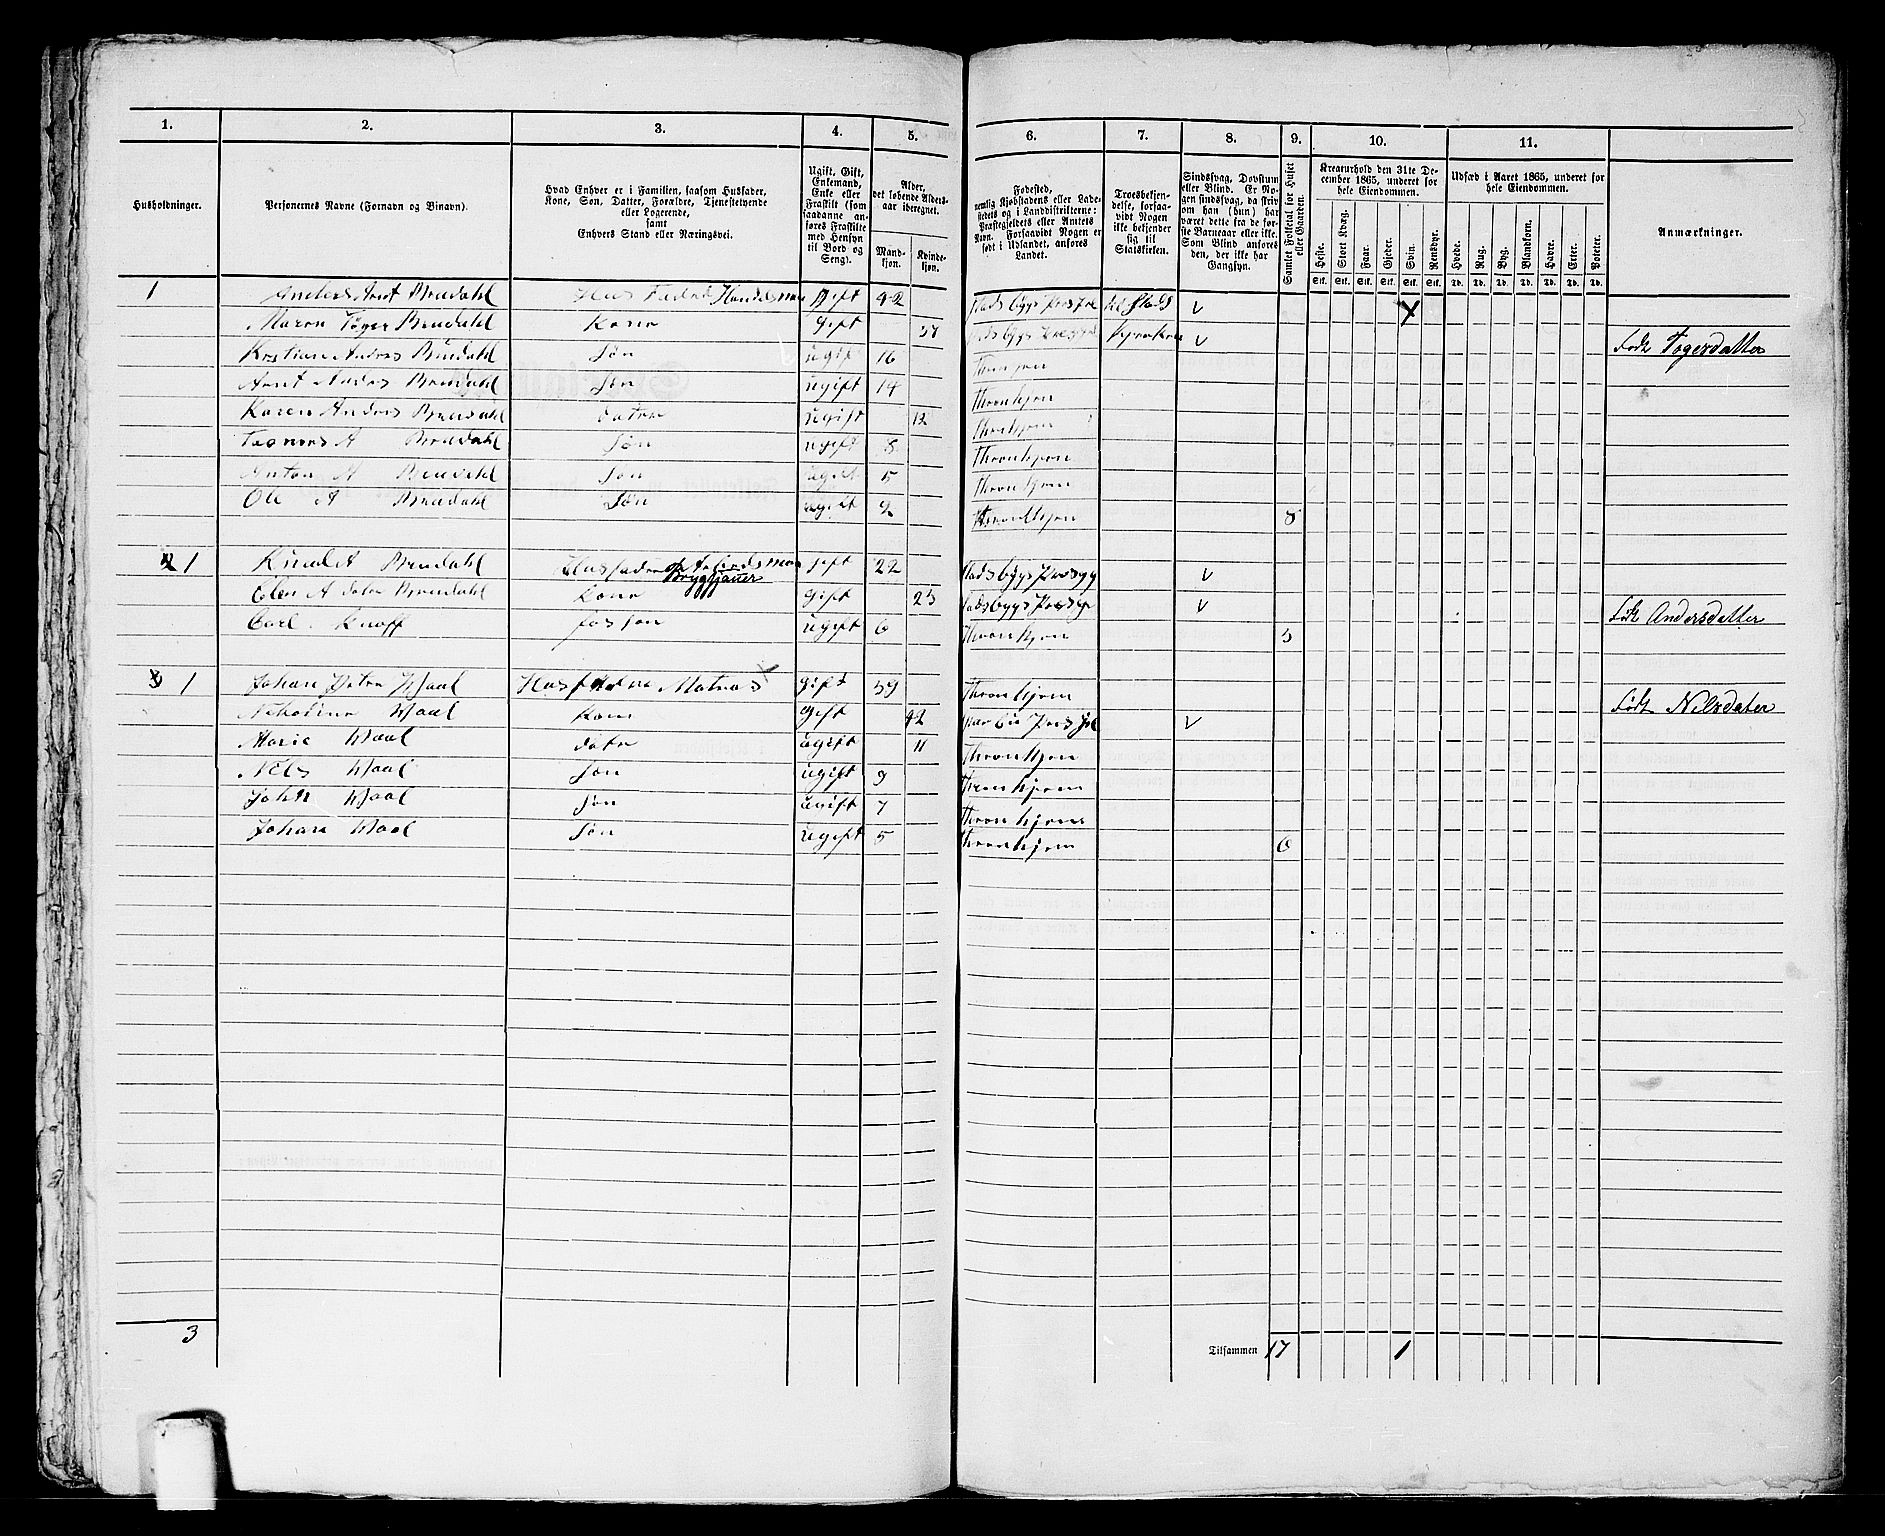 1. 2. 3. 4. 5. 6. 7. 8. 9. 10. 11.
Husholdninger.
Personernes Navne (Fornavn og Binavn).
Hvad Enhver er i Familien, saasom Husfader,
Kone, Søn, Datter, Forældre, Tjenestetyende
eller Logerende,
samt
Enhvers Stand eller Næringsvei.
Ugift, Gift,
Enkemand,
Enke eller
Fraskilt (som
saadanne an-
føres Fraskilte
med Hensyn
til Bord og
Seng).
Alder,
det løbende Alders-
aar iberegnet.
Mand-
kjøn.
Kvinde-
kjøn.
Fødested,
nemlig Kjøbstadens eller Lade-
stedets og i Landdistrikterne:
Præstegjeldets eller Amtets
Navn. Forsaavidt Nogen er
født i Udlandet, anføres
Landet.
Troesbekjen-
delse, forsaa-
vidt Nogen
ikke bekjender
sig til
Statskirken.
Sindssvag, Døvstum
eller Blind. Er No-
gen sindssvag, da skriv
om han (hun) har
været dette fra de før-
ste Barneaar eller ikke.
Som Blind anføres
den, der ikke har
Gangsyn.
Samlet Folketal for Huset
eller Gaarden.
Kreaturhold den 31te De-
cember 1865, underet for
hele Eiendommen.
Heste. Stort Kvæg. Faar. Gjeder. Svin. Rensdyr.
Stk. Stk. Stk. Stk. Stk. Stk.
Udsæd i Aaret 1865, underet for
hele Eiendommen.
Hvede. Rug. Byg. Blandkorn. Havre. Erter. Poteter.
Td. Td. Td. Td. Td. Td. Td.
Anmærkninger.
1 Anders Arnt Brudahl Hus Fader Handelsman gift 42 Stads bygs Præstgje til Stads V X
Maren Tøger Brudahl Kone gift 37 Stads bygs Præstgje Kjerken V Født Tøgersdatter
Kristian Andres Brudahl Søn ugift 16 Thronhjem
Arnt Andres Brudahl Søn ugift 14 Thronhjem
Karen Andres Brudahl dater ugift 12 Thronhjem
A Brudahl Søn ugift 8 Thronhjem
Anton A Brudahl Søn ugift 5 Thronhjem
Ole A Brudahl Søn ugift 2 Throndhjem 8
2 1 Knud A Brudahl Husfader og Arbeidsman gift 22 Stadsbygs Præsgj V
Bryggjauer
Elen A dater Brudahl Kone gift 25 Stadsbygs Præsgj V Født Andersdatter
Carl Knoff fossøn ugift 6 Thronhjem 3
3 1 Johan Peter Waal Husfader Matros X gift 39 Thronhjem
Nikoline Waal Kone gift 42 Præsgjel V Født Nilsdater
Marie Waal dater ugift 11 Thronhjem
Nils Waal Søn ugift 9 Thronhjem
John Waal Søn ugift 7 Thronhjem
Johan Waal Søn ugift 5 Thronhjem 6
3 Tilsammen 17 1